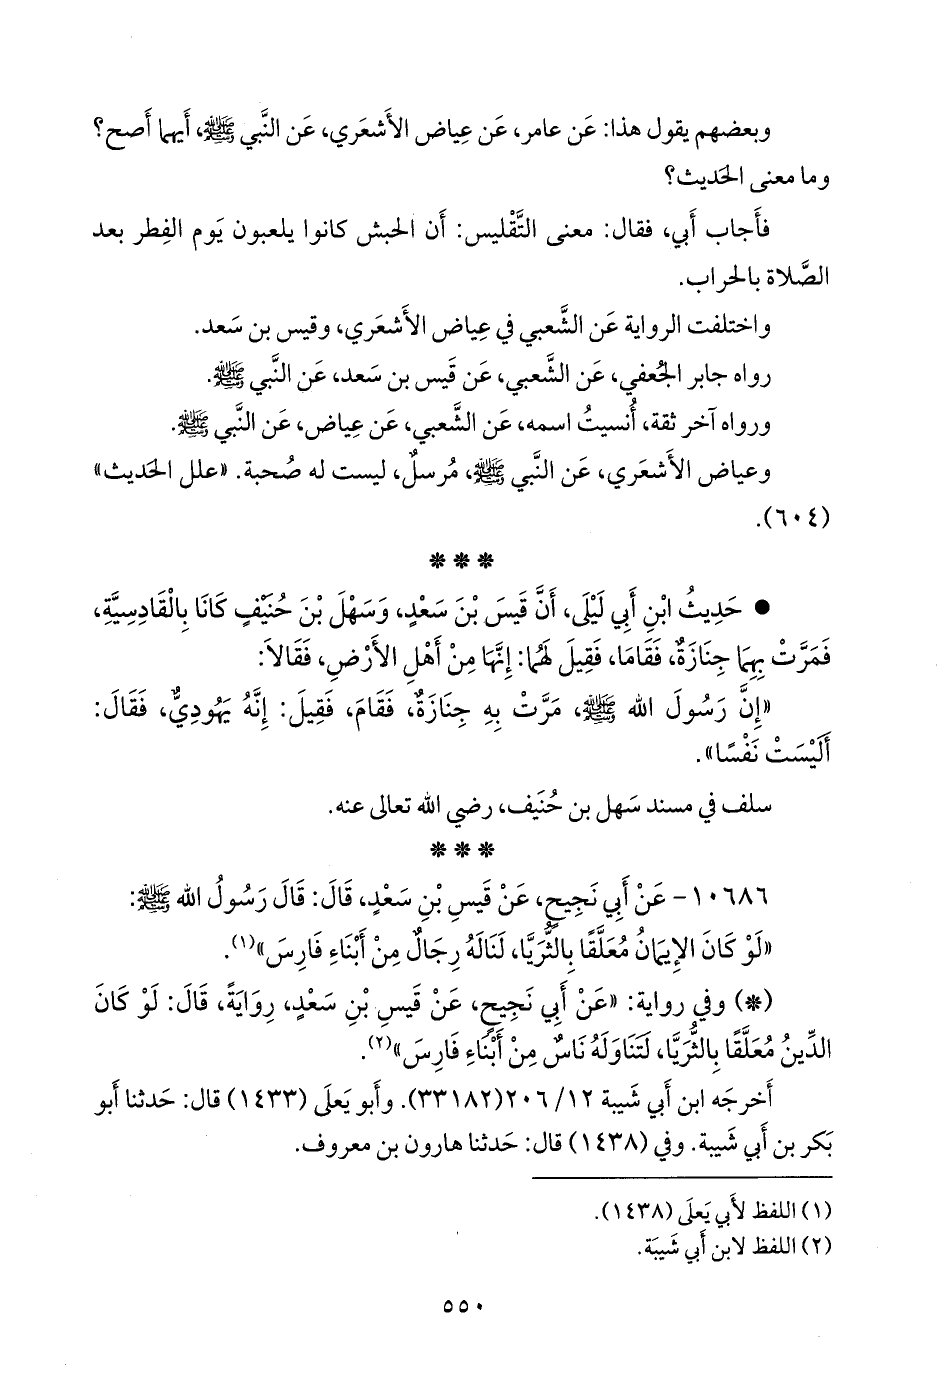 وبعضهم يقول هذا: عَن عامر، عَن عِياض الأَشعَري، عَن النَّبي ﷺ، أَيهما أَصح؟
وما معنى الحَديث؟
فأَجاب أَبي، فقال: معنى التَّقْليس: أَن الحبش كانوا يلعبون يَوم الفِطر بعد
الصَّلاة بالحراب.
واختلفت الرواية عَن الشَّعبي في عِياض الأَشعَري، وقيس بن سَعد.
رواه جابر الجُعفي، عَن الشَّعبي، عَن قَيس بن سَعد، عَن النَّبي ﷺ.
ورواه آخر ثقة، أُنسيتُ اسمه، عَن الشَّعبي، عَن عِياض، عَن النَّبي ﷺ.
وعياض الأَشعَري، عَن النَّبي ﷺ، مُرسلٌ، ليست له صُحبة. «علل الحَديث»
(٦٠٤).
* * *
● حَدِيثُ ابْنِ أَبِي لَيْلَى، أَنَّ قَيْسَ بْنَ سَعْدٍ، وَسَهْلَ بْنَ حُنَيْفٍ كَانَا بِالْقَادِسِيَّةِ،
فَمَرَّتْ بِهِمَا جِنَازَةٌ، فَقَامَا، فَقِيلَ لَهُمَا: إِنَّهَا مِنْ أَهْلِ الأَرْضِ، فَقَالاَ:
«إِنَّ رَسُولَ الله ﷺ، مَرَّتْ بِهِ جِنَازَةٌ، فَقَامَ، فَقِيلَ: إِنَّهُ يَهُودِيٌّ، فَقَالَ:
أَلَيْسَتْ نَفْسًا».
سلف في مسند سَهل بن حُنَيف، رضي الله تعالى عنه.
* * *
١٠٦٨٦- عَنْ أَبِي نَجِيحٍ، عَنْ قَيْسِ بْنِ سَعْدٍ، قَالَ: قَالَ رَسُولُ الله ﷺ:
«لَوْ كَانَ الإِيمَانُ مُعَلَّقًا بِالثُّرَيَّا، لَنَالَهُ رِجَالٌ مِنْ أَبْنَاءِ فَارِسَ»(١).
(*) وفي رواية: «عَنْ أَبِي نَجِيحٍ، عَنْ قَيْسِ بْنِ سَعْدٍ، رِوَايَةً، قَالَ: لَوْ كَانَ
الدِّينُ مُعَلَّقًا بِالثُّرَيَّا، لَتَنَاوَلَهُ نَاسٌ مِنْ أَبْنَاءِ فَارِسَ»(٢).
أَخرجَه ابن أَبي شَيبة ١٢/ ٢٠٦(٣٣١٨٢). وأَبو يَعلَى (١٤٣٣) قال: حَدثنا أَبو
بَكر بن أَبي شَيبة. وفي (١٤٣٨) قال: حَدثنا هارون بن معروف.
(١) اللفظ لأَبي يَعلَى (١٤٣٨).
(٢) اللفظ لابن أَبي شَيبَة.
٥٥٠